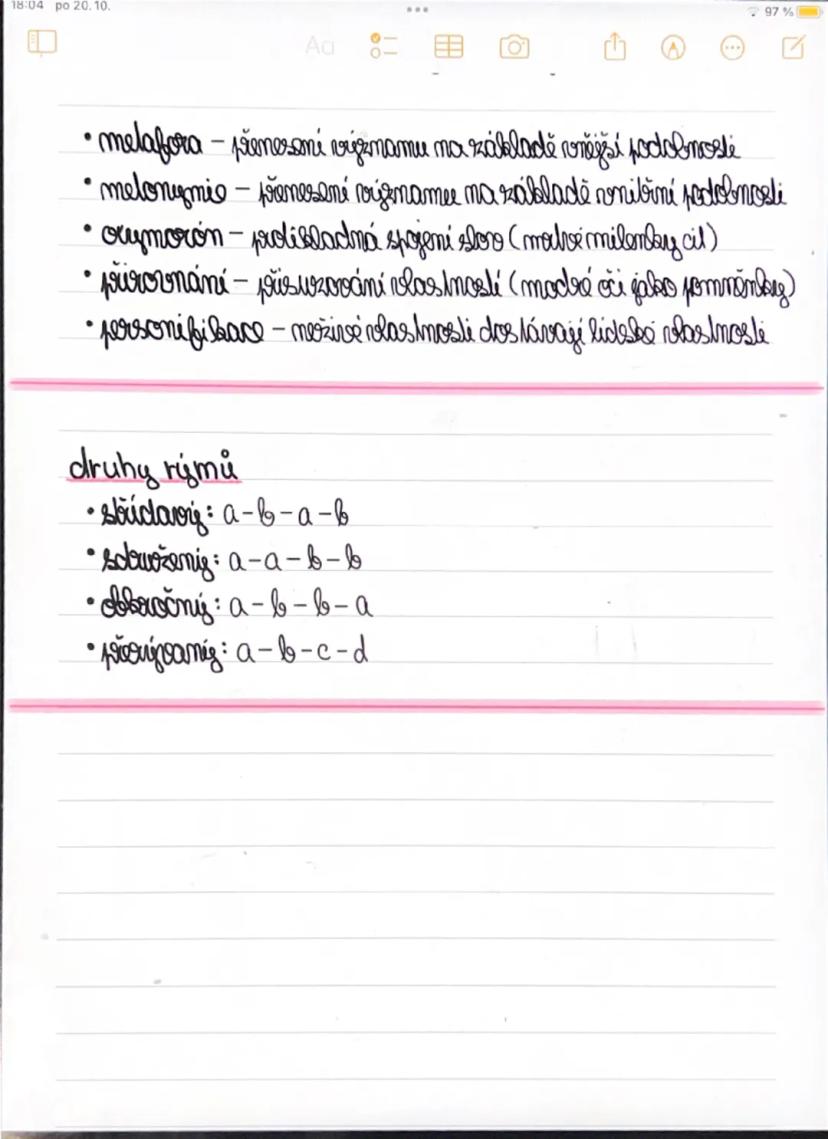 18:04 po 20. 10.
97 %
Aa
• metafora – přenesení význnamu na základě vnější podobnosti
• metonymie – přenesení význnamu na základě vnitřní podobnosti
• oxymorón – protikladná spojení slov (mrtvé milenky cit)
• přirovnání – přisuzování vlastností (modré oči jako pomněnky)
• personifikace – neživé vlastnosti dostávají lidské vlastnosti
druhy rýmů
• střídavý: a – b – a – b
• sdružený: a – a – b – b
• obkročný: a – b – b – a
• přerývaný: a – b – c – d